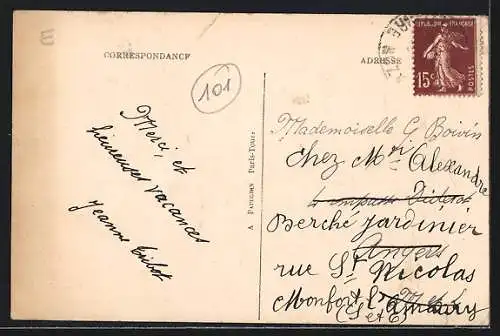 CORRESPONDANCE
ADRESSE
RÉPUBLIQUE FRANÇAISE
15c
POSTES
101
Merci, et
heureuses vacances
Jeanne
A PAPEGHIN PARIS-TOURS
Mademoiselle G Boivin
Chez Mr Alexandre
4 impasse
Berché jardinier
Angers
rue St Nicolas
Monfort l'amaury
(S et O)